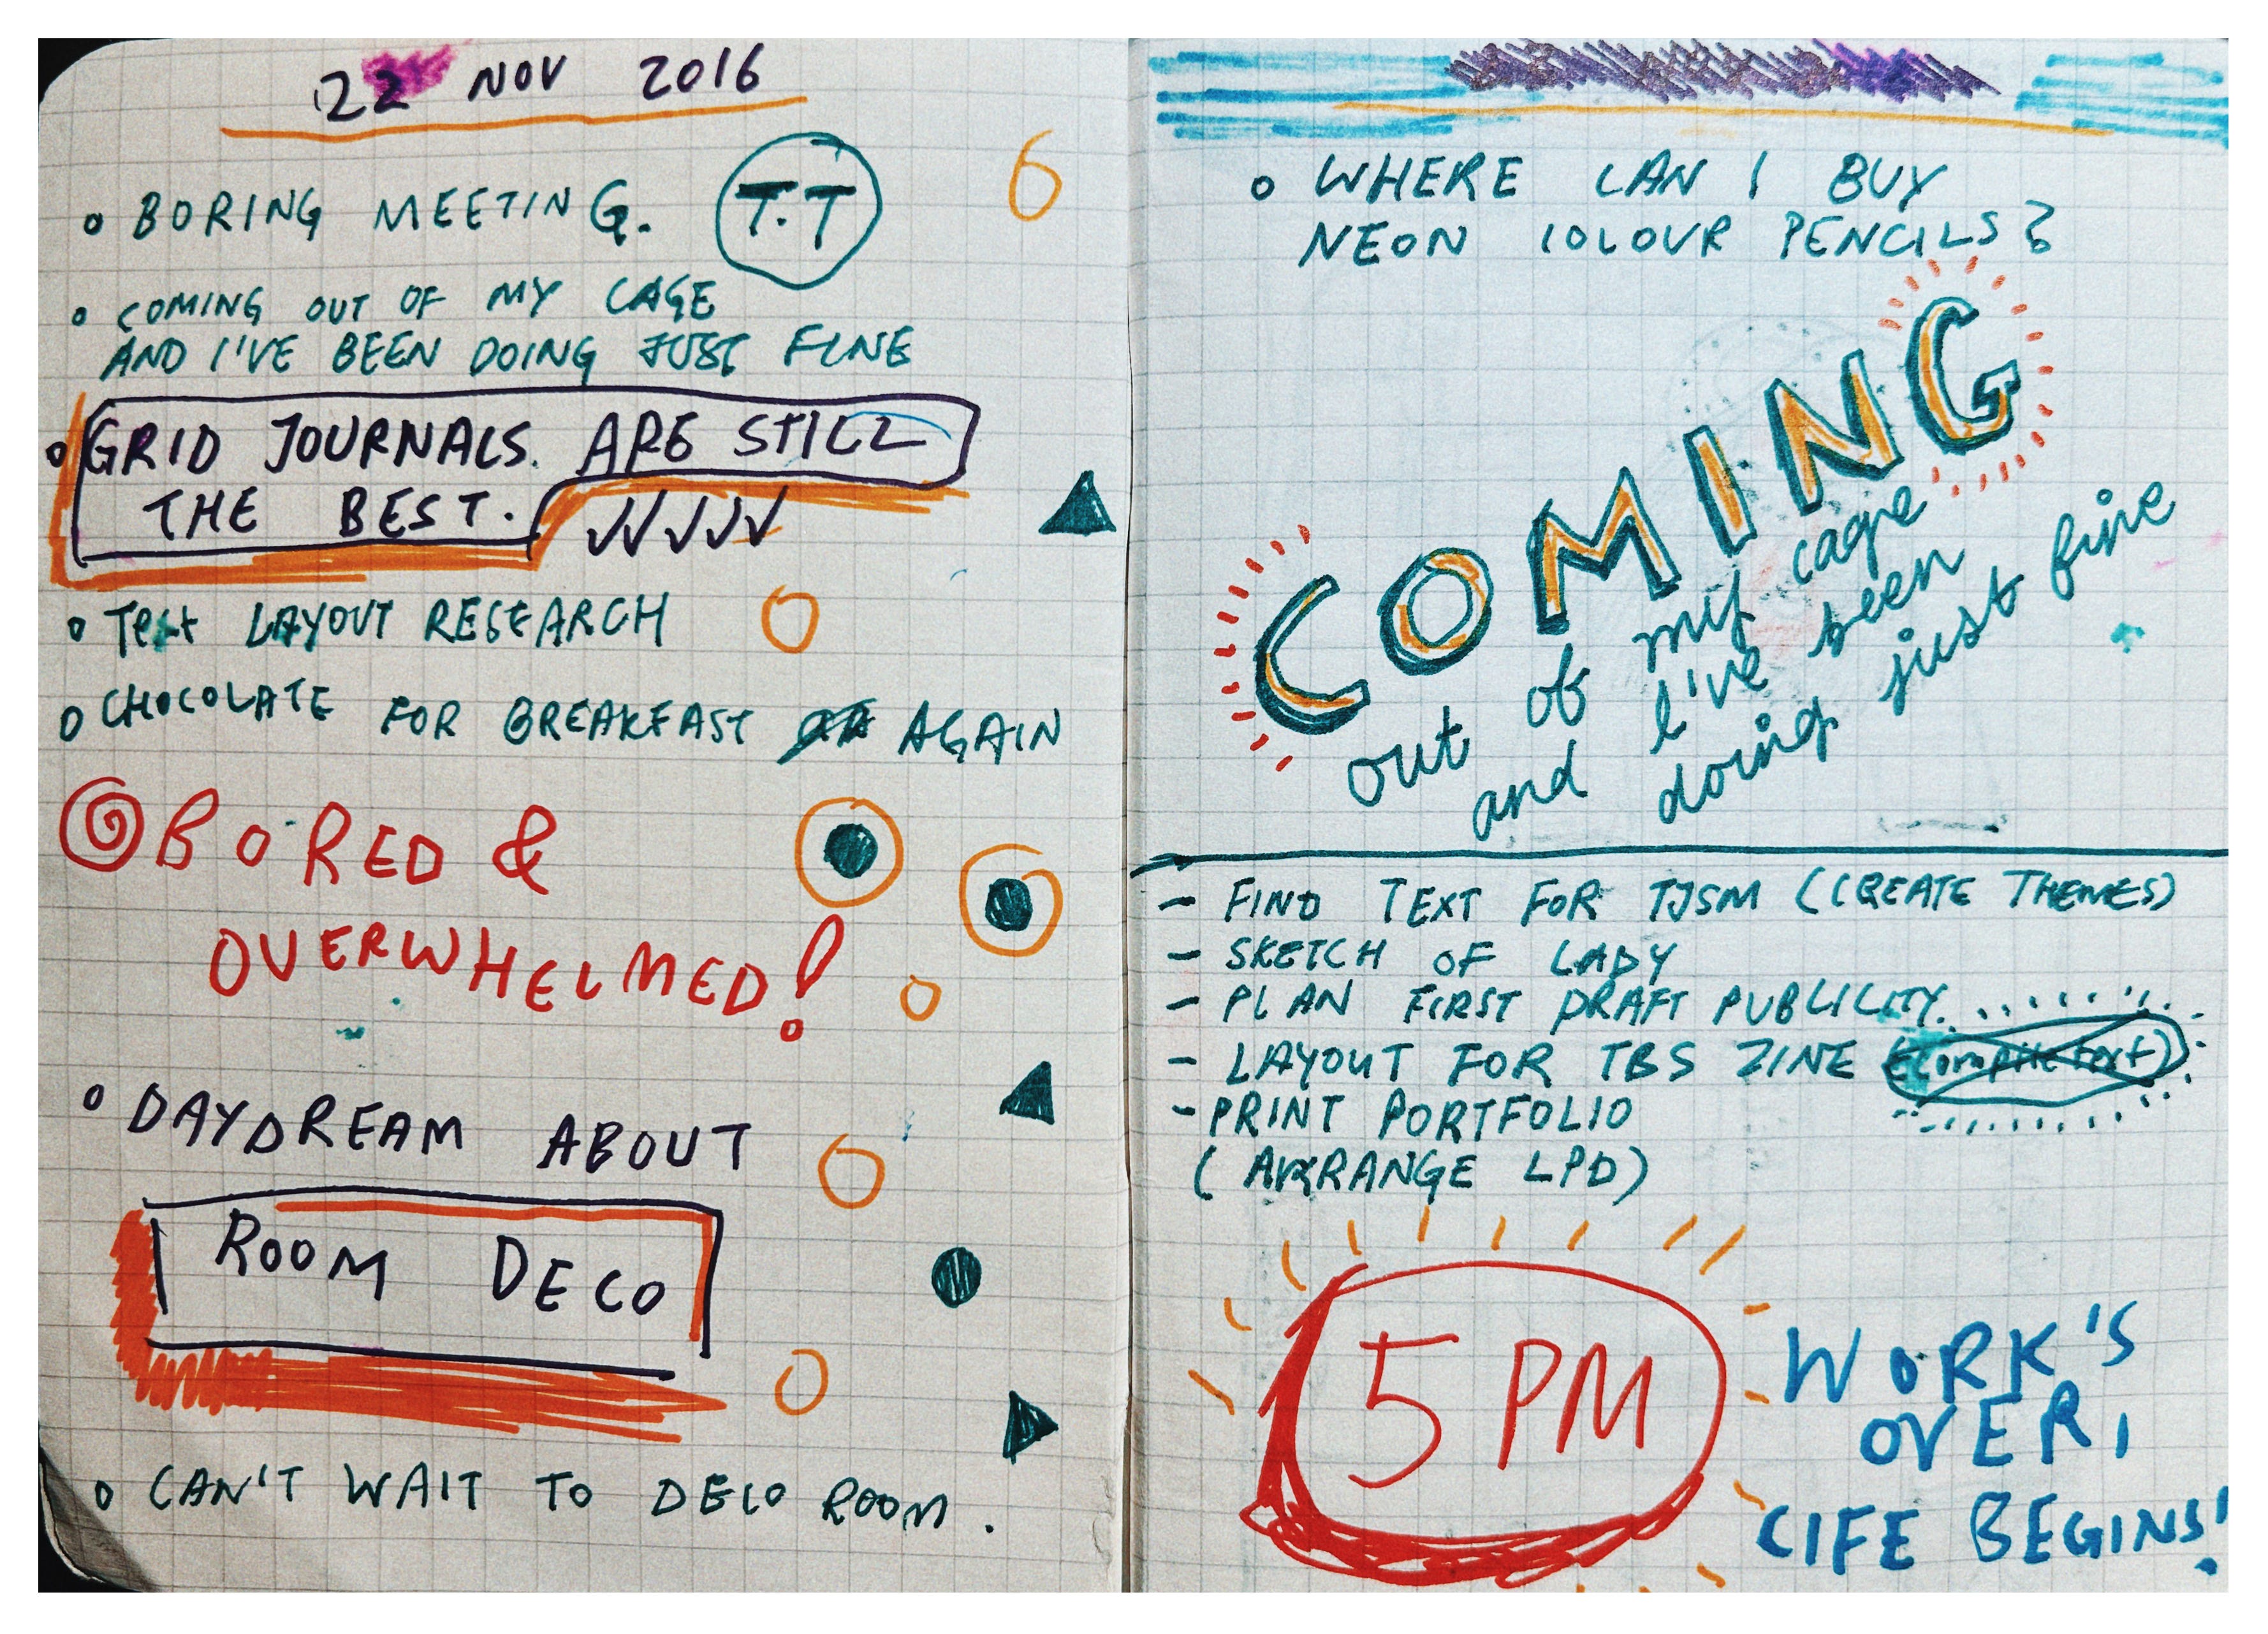 22 NOV 2016
BORING MEETING. T.T
COMING OUT OF MY CAGE
AND I'VE BEEN DOING JUST FINE
GRID JOURNALS. ARE STILL
THE BEST.
TEXT LAYOUT RESEARCH
CHOCOLATE FOR BREAKFAST AGAIN
BORED &
OVERWHELMED!
DAYDREAM ABOUT
ROOM DECO
CAN'T WAIT TO DECO ROOM.
WHERE CAN I BUY
NEON COLOUR PENCILS?
COMING
out of my cage
and I've been
doing just fine
- FIND TEXT FOR TJSM (CREATE THEMES)
- SKETCH OF LADY
- PLAN FIRST DRAFT PUBLICITY
- LAYOUT FOR TBS ZINE (compile text)
- PRINT PORTFOLIO
(ARRANGE LPD)
5 PM
WORK'S
OVER,
LIFE BEGINS!